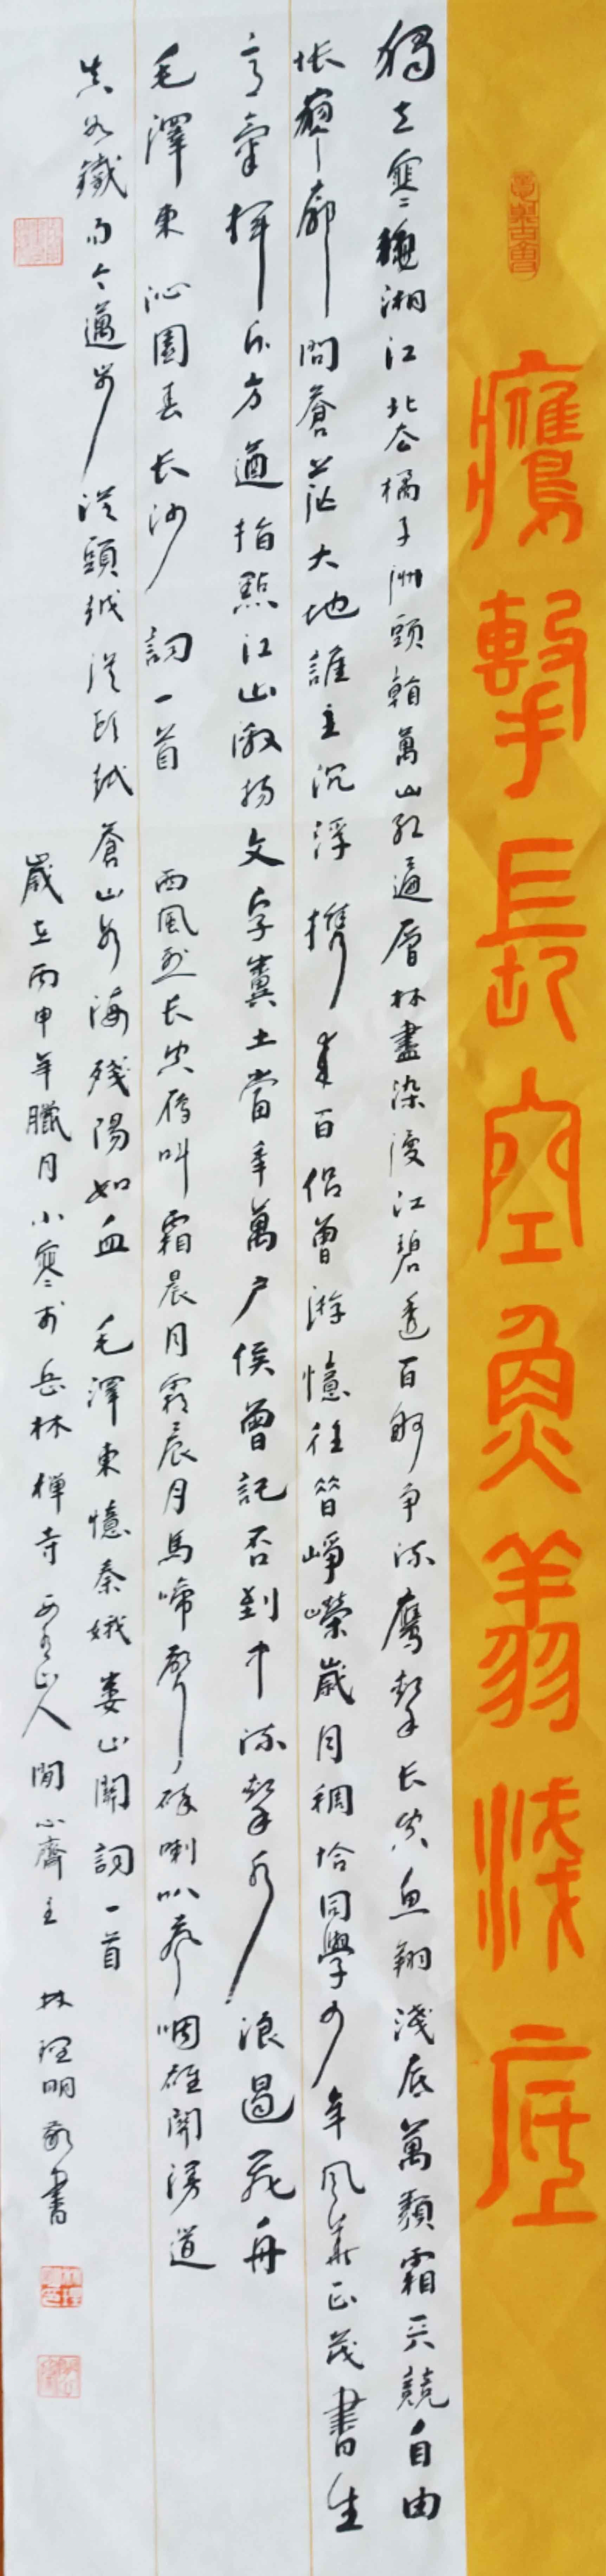 鷹擊長空魚翔淺底
獨立寒秋湘江北去橘子洲頭看萬山紅遍層林盡染漫江碧透百舸爭流鷹擊长空魚翔淺底萬類霜天競自由
悵寥廓問蒼茫大地誰主沉浮攜來百侶曾游憶往昔崢嶸歲月稠恰同學少年風華正茂書生
意氣揮斥方遒指點江山激揚文字糞土當年萬户侯曾記否到中流擊水浪遏飛舟
毛澤東沁園春长沙 詞一首 西風烈长空雁叫霜晨月霜晨月馬啼聲碎喇叭聲咽雄關漫道
真如鐵而今邁步從頭越從頭越蒼山如海殘陽如血 毛澤東憶秦娥婁山關詞一首
歲在丙申年臘月小寒於岳林禅寺 山人 閒心齋主 林理明敬書